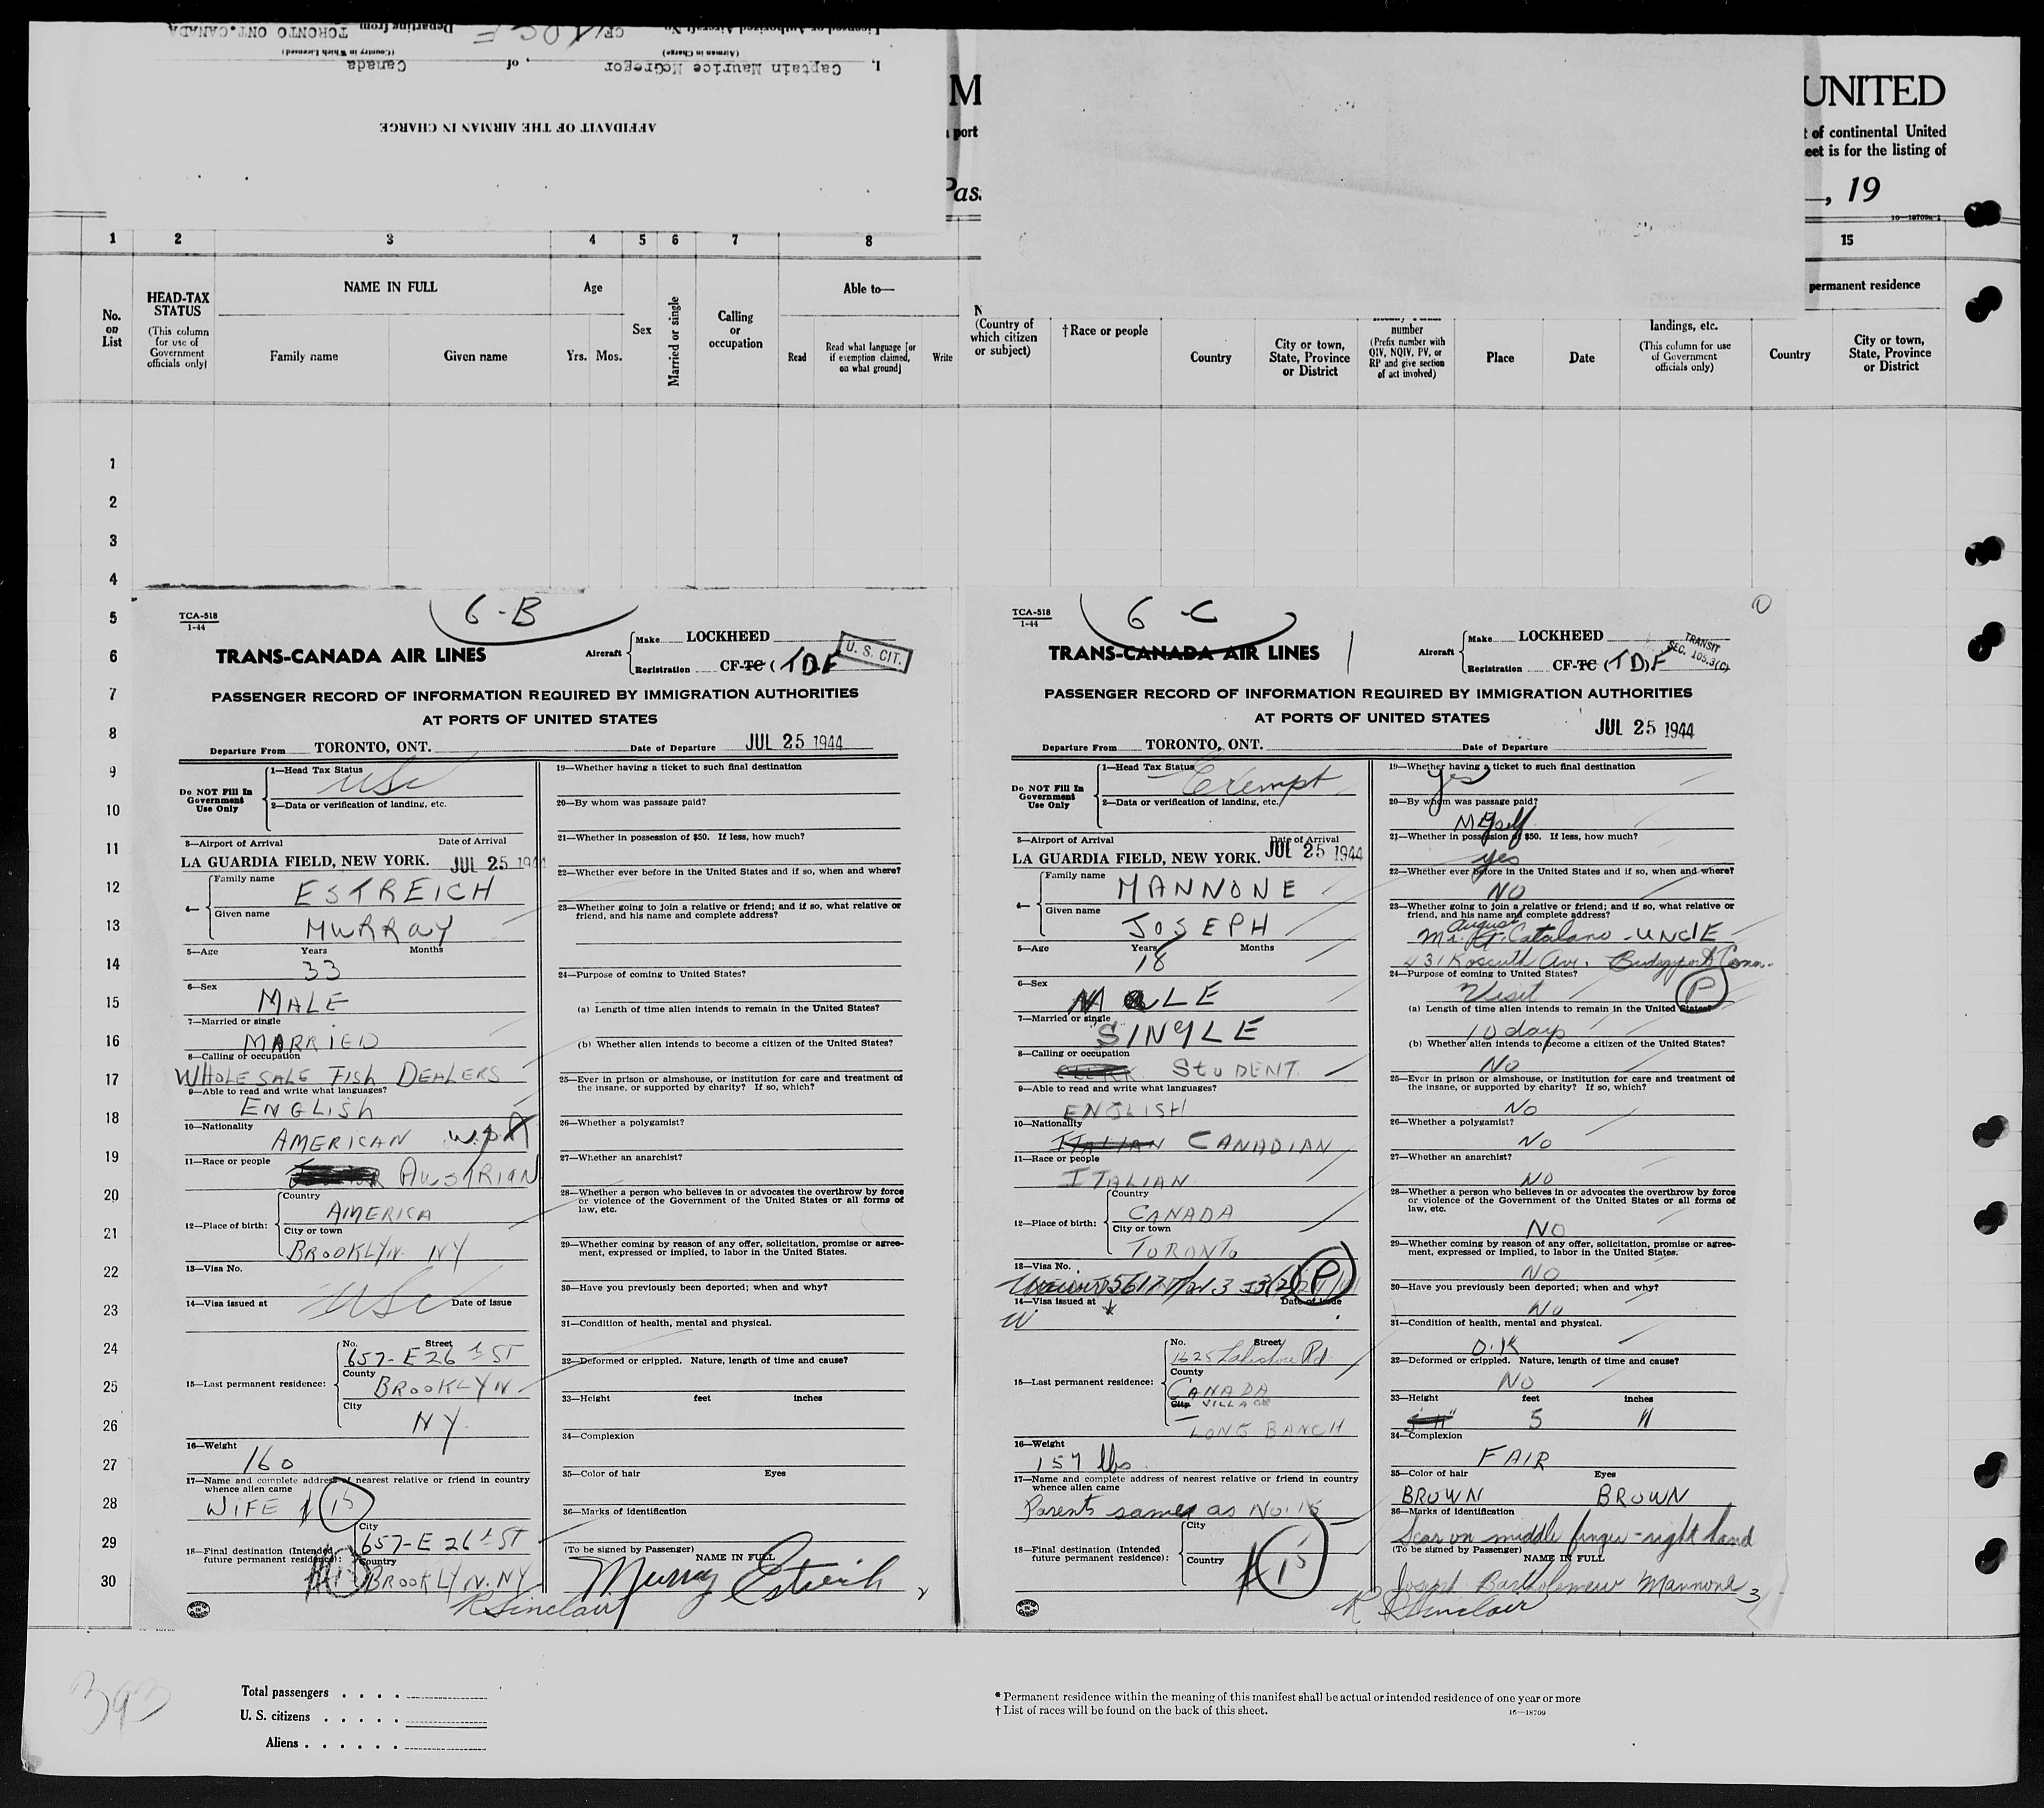 Licensed or Authorized Aircraft No. CF Departing from TORONTO ONT. CANADA
(Airman in Charge) (Country in Which Licensed)
I, Captain Maurice McGregor, of Canada
AFFIDAVIT OF THE AIRMAN IN CHARGE
M
UNITED
port
t of continental United
eet is for the listing of
Pas
, 19
16—18709a-1
1 2 3 4 5 6 7 8 15
No. on List
HEAD-TAX STATUS
(This column for use of Government officials only)
NAME IN FULL
Family name Given name
Age
Yrs. Mos.
Sex
Married or single
Calling or occupation
Able to—
Read
Read what language [or if exemption claimed, on what ground]
Write
(Country of which citizen or subject)
†Race or people
Country
City or town, State, Province or District
number
(Prefix number with QIV, NQIV, PV, or RP and give section of act involved)
Place
Date
landings, etc.
(This column for use of Government officials only)
permanent residence
Country
City or town, State, Province or District
1
2
3
4
5
6
7
8
9
10
11
12
13
14
15
16
17
18
19
20
21
22
23
24
25
26
27
28
29
30
6-B
TCA-518
1-44
TRANS-CANADA AIR LINES
Aircraft
Make LOCKHEED
Registration CF-TC (TDF
U. S. CIT.
PASSENGER RECORD OF INFORMATION REQUIRED BY IMMIGRATION AUTHORITIES
AT PORTS OF UNITED STATES
Departure From TORONTO, ONT. Date of Departure JUL 25 1944
Do NOT Fill In Government Use Only
1—Head Tax Status USC
2—Data or verification of landing, etc.
3—Airport of Arrival Date of Arrival
LA GUARDIA FIELD, NEW YORK. JUL 25 194
4—
Family name ESTREICH
Given name MURRAY
5—Age Years Months
33
6—Sex
MALE
7—Married or single
MARRIED
8—Calling or occupation
WHOLESALE FISH DEALERS
9—Able to read and write what languages?
ENGLISH
10—Nationality
AMERICAN
11—Race or people
AUSTRIAN
12—Place of birth:
Country
AMERICA
City or town
BROOKLYN. NY
13—Visa No.
USC
14—Visa issued at Date of issue
15—Last permanent residence:
No. Street
657-E 26 ST
County
BROOKLYN
City
NY.
16—Weight
160
17—Name and complete address of nearest relative or friend in country whence alien came
WIFE # 15
18—Final destination (Intended future permanent residence):
City
657-E 26 ST
Country
BROOKLYN. NY
19—Whether having a ticket to such final destination
20—By whom was passage paid?
21—Whether in possession of $50. If less, how much?
22—Whether ever before in the United States and if so, when and where?
23—Whether going to join a relative or friend; and if so, what relative or friend, and his name and complete address?
24—Purpose of coming to United States?
(a) Length of time alien intends to remain in the United States?
(b) Whether alien intends to become a citizen of the United States?
25—Ever in prison or almshouse, or institution for care and treatment of the insane, or supported by charity? If so, which?
26—Whether a polygamist?
27—Whether an anarchist?
28—Whether a person who believes in or advocates the overthrow by force or violence of the Government of the United States or all forms of law, etc.
29—Whether coming by reason of any offer, solicitation, promise or agreement, expressed or implied, to labor in the United States.
30—Have you previously been deported; when and why?
31—Condition of health, mental and physical.
32—Deformed or crippled. Nature, length of time and cause?
33—Height feet inches
34—Complexion
35—Color of hair Eyes
36—Marks of identification
(To be signed by Passenger) NAME IN FULL
Murray Estreich
R Sinclair
6-C
TCA-518
1-44
TRANS-CANADA AIR LINES
Aircraft
Make LOCKHEED
Registration CF-TC (TD)F
TRANSIT
SEC. 105.3(C)
PASSENGER RECORD OF INFORMATION REQUIRED BY IMMIGRATION AUTHORITIES
AT PORTS OF UNITED STATES
Departure From TORONTO, ONT. Date of Departure JUL 25 1944
Do NOT Fill In Government Use Only
1—Head Tax Status Exempt
2—Data or verification of landing, etc.
3—Airport of Arrival Date of Arrival
LA GUARDIA FIELD, NEW YORK. JUL 25 1944
4—
Family name MANNONE
Given name JOSEPH
5—Age Years Months
18
6—Sex
MALE
7—Married or single
SINGLE
8—Calling or occupation
CLERK STUDENT.
9—Able to read and write what languages?
ENGLISH
10—Nationality
ITALIAN CANADIAN
11—Race or people
ITALIAN
12—Place of birth:
Country
CANADA
City or town
TORONTO
13—Visa No.
P
14—Visa issued at Date of issue
15—Last permanent residence:
No. Street
1625 Lakeshore Rd.
County
CANADA
City VILLAGE
LONG BANCH
16—Weight
157 lbs.
17—Name and complete address of nearest relative or friend in country whence alien came
Parents same as No. 15
18—Final destination (Intended future permanent residence):
City
Country
# 15
19—Whether having a ticket to such final destination
yes
20—By whom was passage paid?
Myself
21—Whether in possession of $50. If less, how much?
yes
22—Whether ever before in the United States and if so, when and where?
NO
23—Whether going to join a relative or friend; and if so, what relative or friend, and his name and complete address?
August
Mr. A. Catalano - UNCLE
431 Kossuth Ave. Bridgeport Conn.
24—Purpose of coming to United States?
Visit P
(a) Length of time alien intends to remain in the United States?
10 days
(b) Whether alien intends to become a citizen of the United States?
NO
25—Ever in prison or almshouse, or institution for care and treatment of the insane, or supported by charity? If so, which?
NO
26—Whether a polygamist?
NO
27—Whether an anarchist?
NO
28—Whether a person who believes in or advocates the overthrow by force or violence of the Government of the United States or all forms of law, etc.
NO
29—Whether coming by reason of any offer, solicitation, promise or agreement, expressed or implied, to labor in the United States.
NO
30—Have you previously been deported; when and why?
No
31—Condition of health, mental and physical.
O.K
32—Deformed or crippled. Nature, length of time and cause?
NO
33—Height feet inches
5 11
34—Complexion
FAIR
35—Color of hair Eyes
BROWN BROWN
36—Marks of identification
Scar on middle finger - right hand
(To be signed by Passenger) NAME IN FULL
Joseph Bartholemew Mannone
R Sinclair
393
Total passengers
U. S. citizens
Aliens
* Permanent residence within the meaning of this manifest shall be actual or intended residence of one year or more
† List of races will be found on the back of this sheet.
16—18709